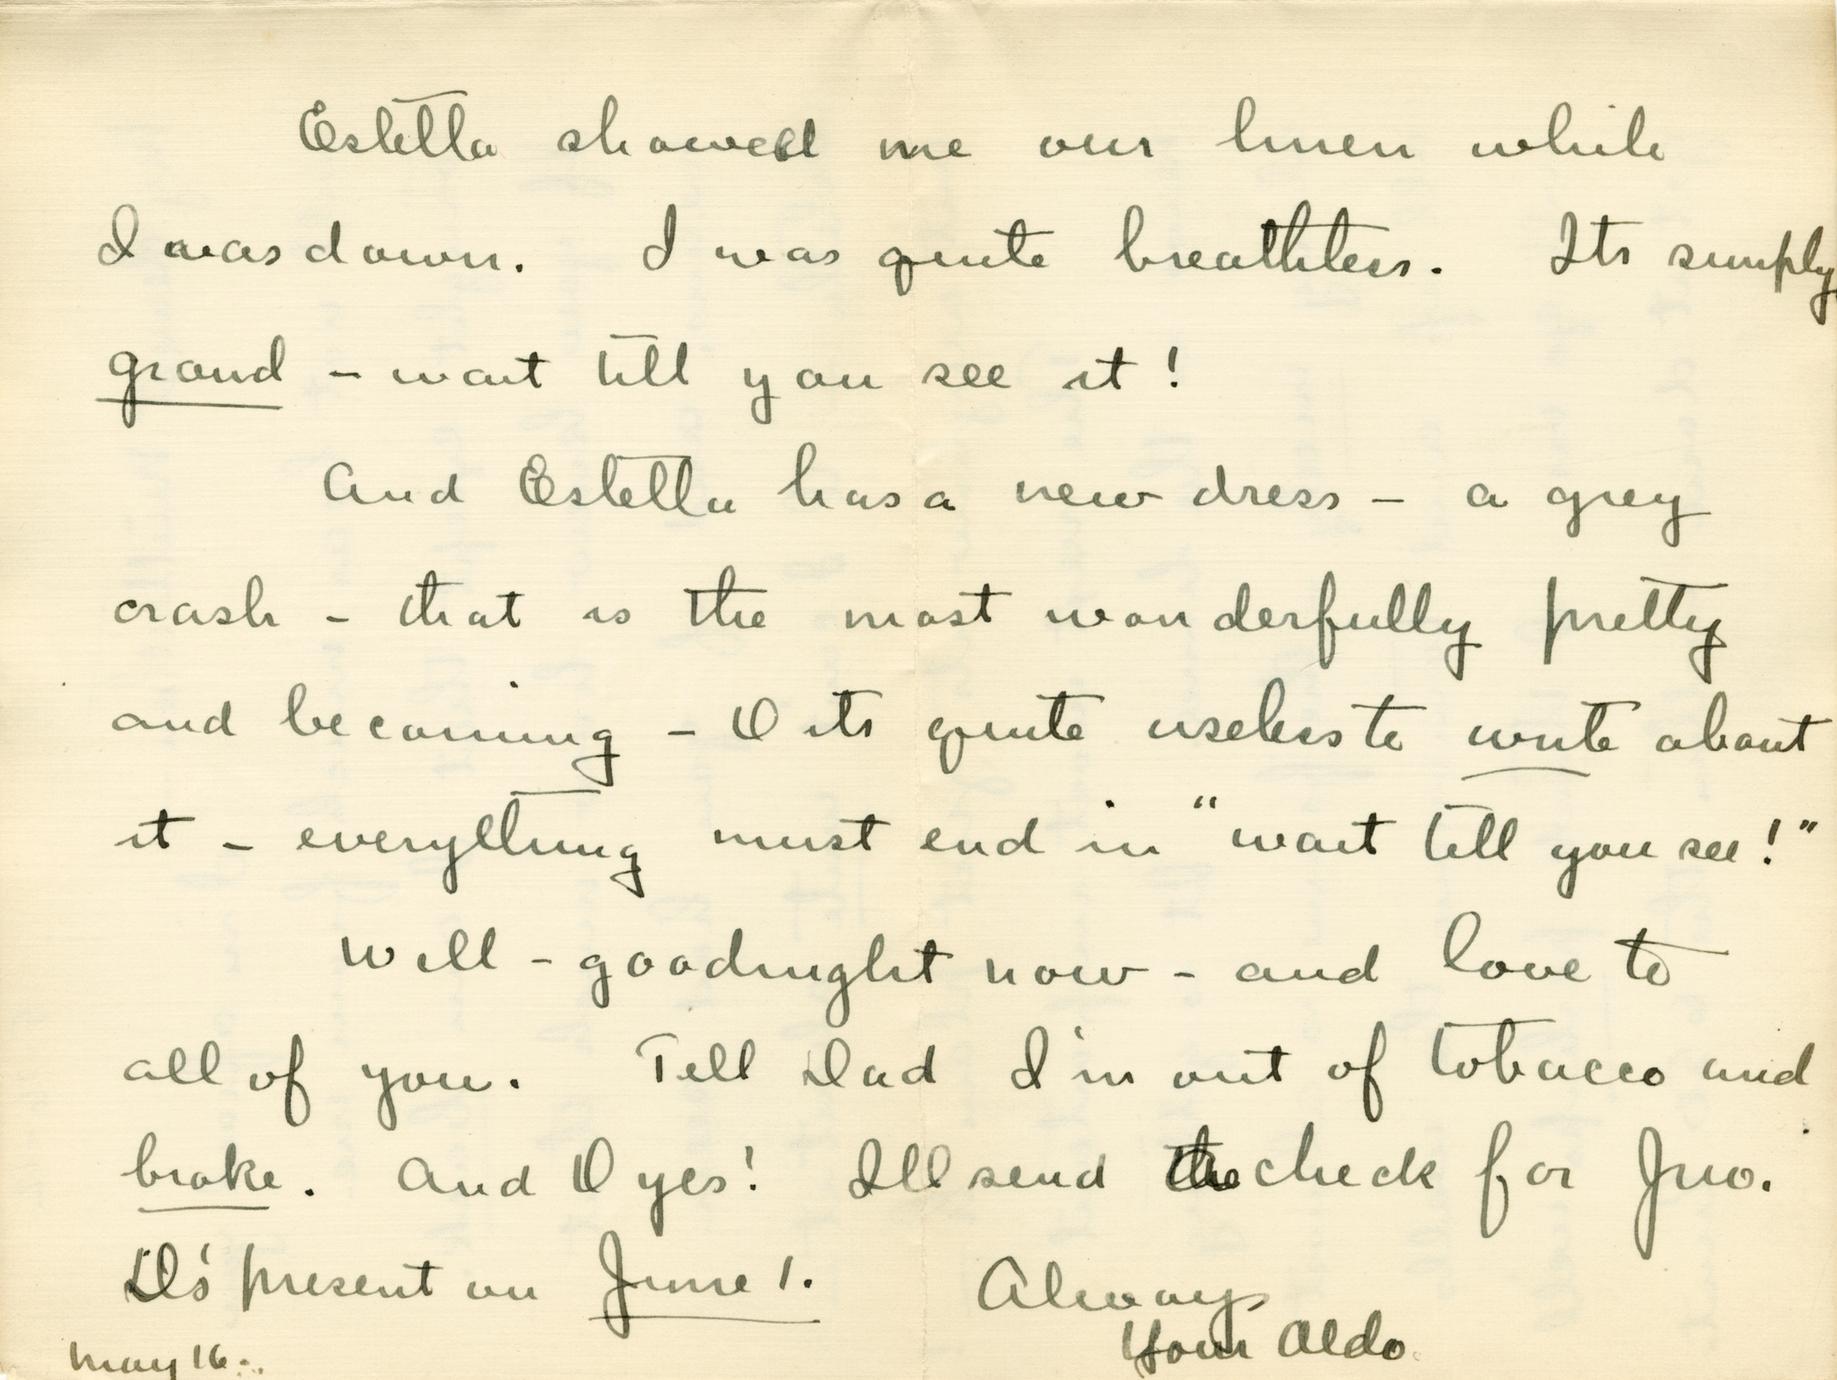 Estella showed me our linen while
I was down. I was quite breathless. Its simply
grand - wait till you see it!
And Estella has a new dress - a grey
crash - that is the most wonderfully pretty
and becoming - O its quite useless to write about
it - everything must end in "wait till you see!"
Well - goodnight now - and love to
all of you. Tell Dad I'm out of tobacco and
broke. And O yes! Ill send the check for Jno.
D's present on June 1.
Always
Your Aldo
May 16.